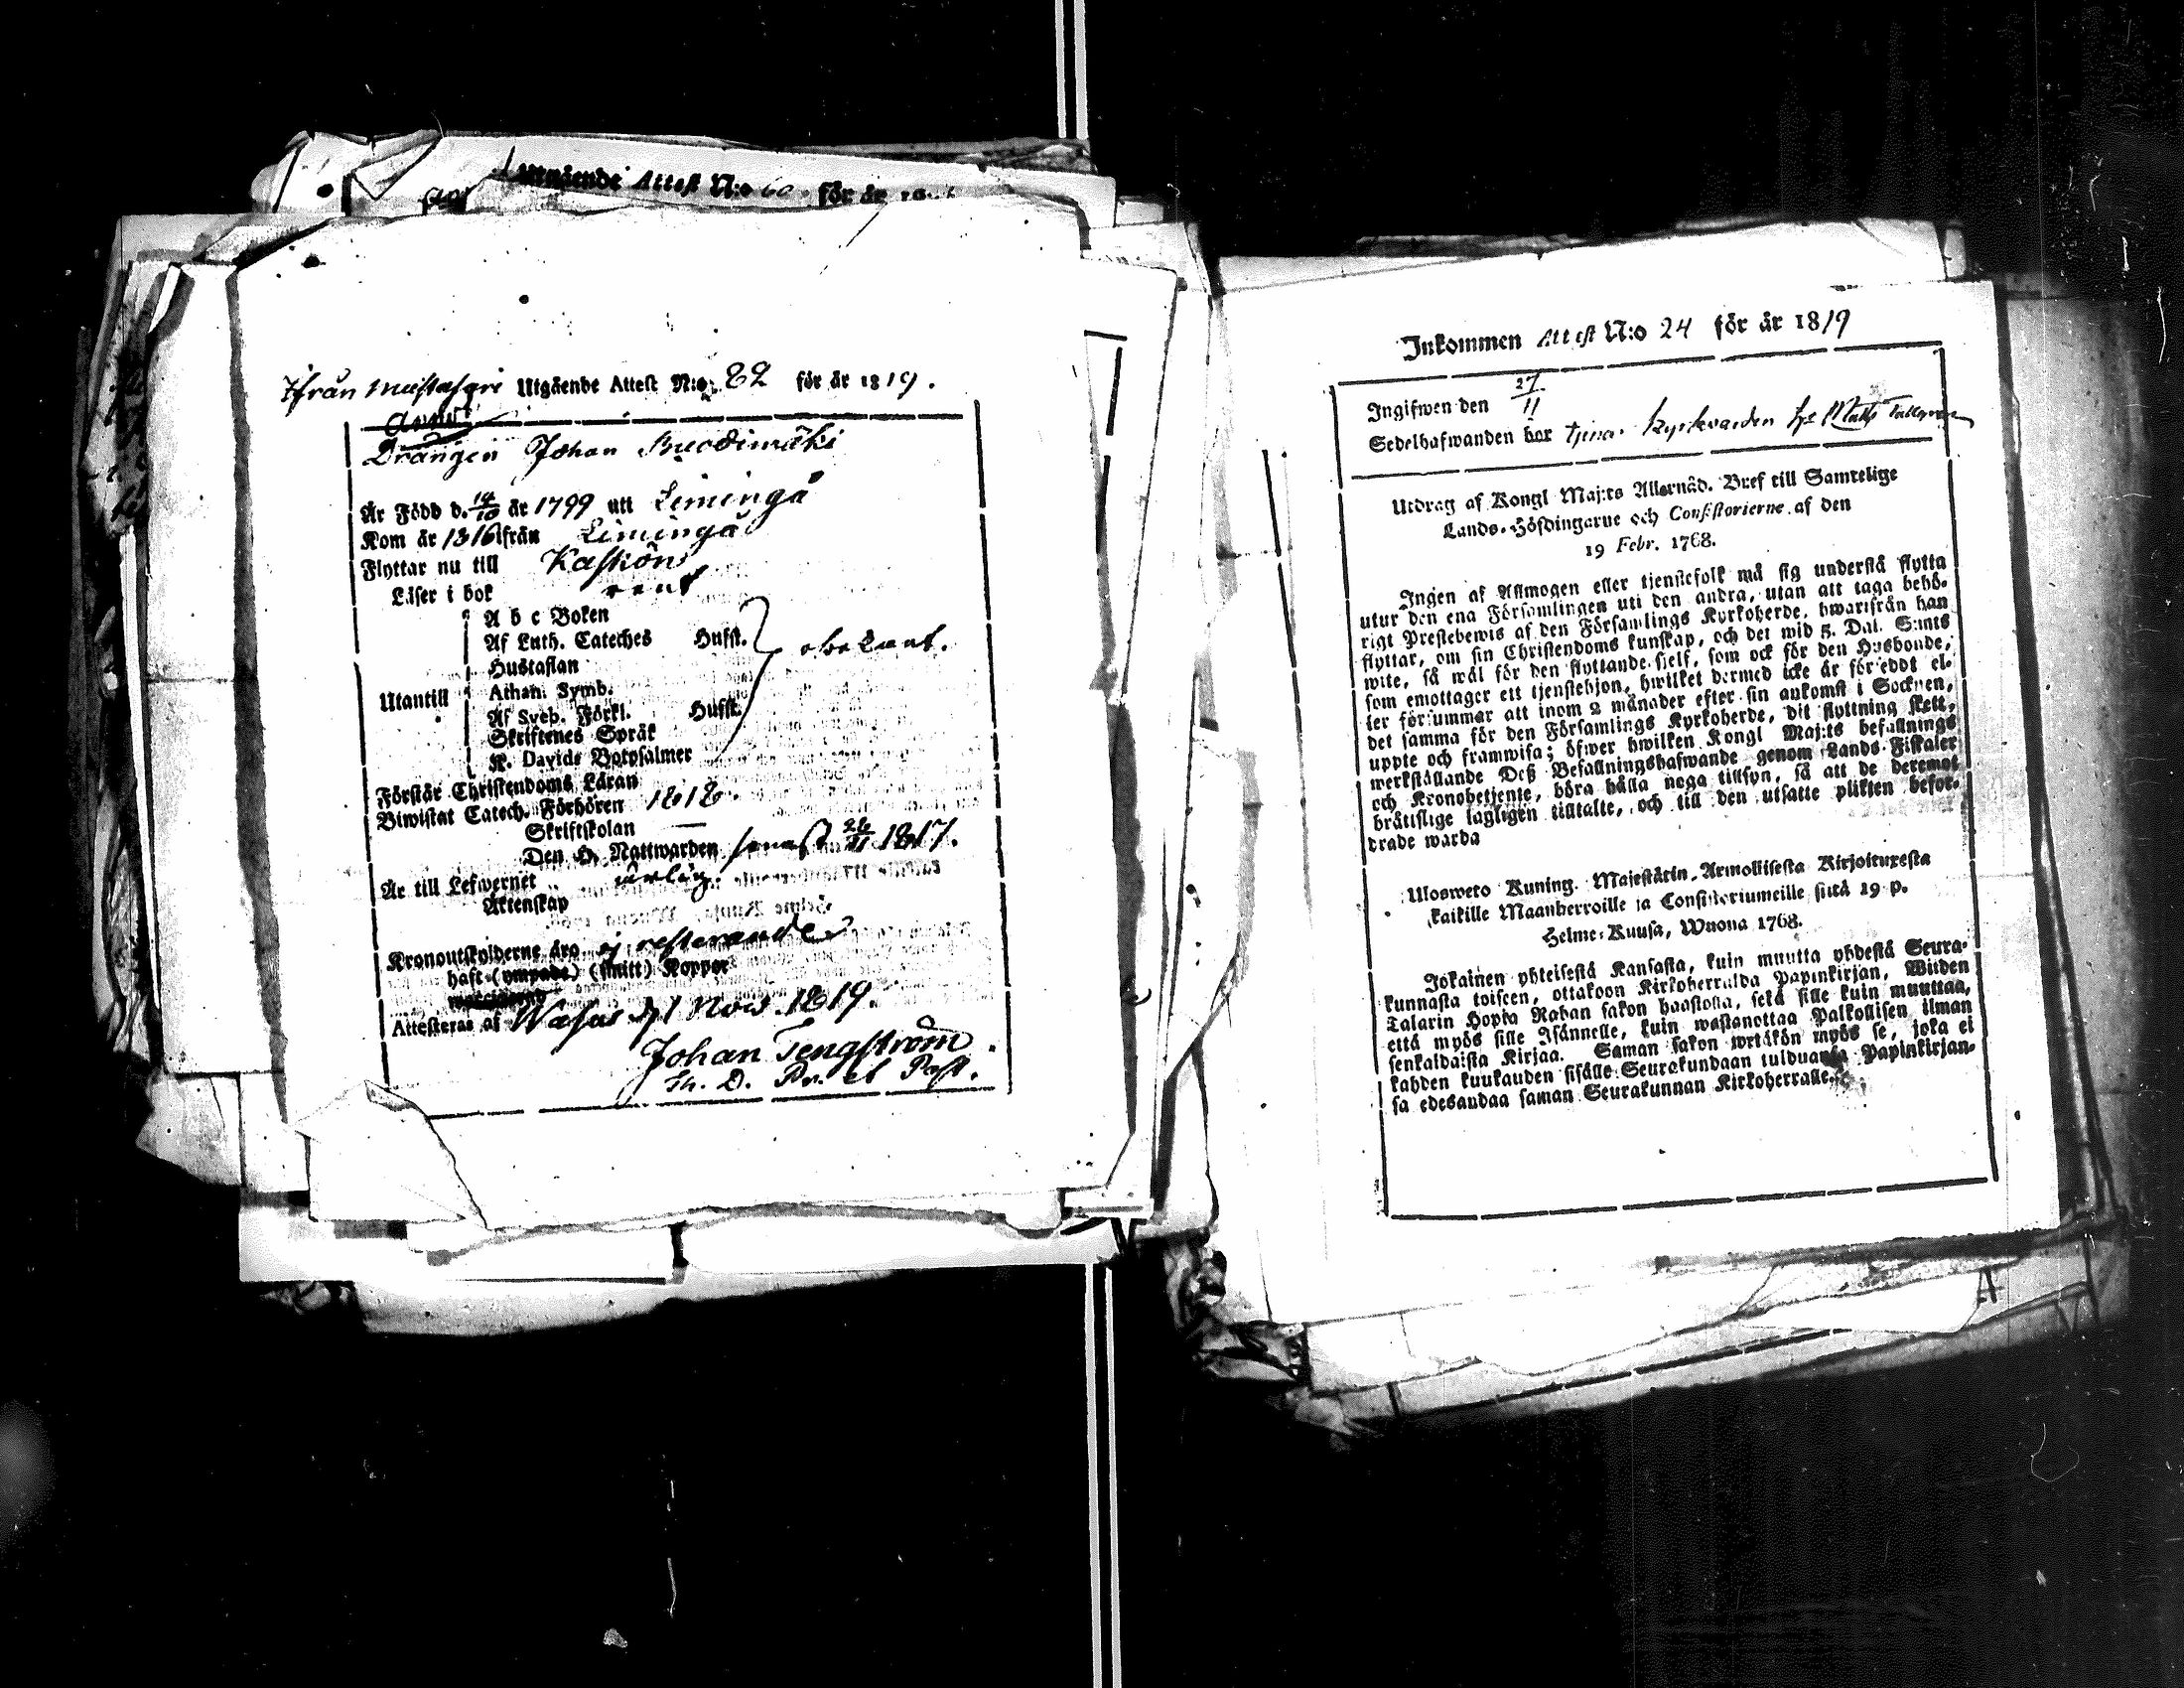 Utgående Attest N:o 60 för år
Ifrån Mustasari Utgående Attest N:o 82 för år 1819.
Drängen Johan
Är Född d. 14/10 år 1799 uti Limingå
Kom år 1816 ifrån Limingå
Flyttar nu till Kaskön
Läser i bok rent
A b c Boken
Af Luth. Cateches Hufst.
Hustaflan
Athan. Symb.
Utantill
Af Sveb. Förkl. Hufst.
Skriftenes Språk
K. Davids Botpsalmer
Förstår Christendoms Läran
Biwistat Catech. Förhören 1818.
Skriftskolan —
Den H. Nattwarden senast 1817.
Är till Lefwernet ärlig.
Äktenskap
Kronoutskylderne äro ej resterande
haft (ympade) (smitt) Koppor
Attesteras af Wasa d. 1 Nov. 1819.
Johan Tengström
Th. D. Pr. et Past.
Inkommen Attest N:o 24 för år 1819
Ingifwen den 27/11
Sedelhafwanden bor tjenar Kyrkvärden hr Matts
Utdrag af Kongl Maj:ts Allernåd. Bref till Samtelige
Lands-Höfdingarne och Consistorierne af den
19 Febr. 1768.
Ingen af Allmogen eller tjenstefolk må sig understå flytta
utur den ena Församlingen uti den andra, utan att taga behö-
rigt Prestebewis af den Församlings Kyrkoherde, hwarifrån han
flyttar, om sin Christendoms kunskap, och det wid 5. Dal. S:mts
wite, så wäl för den flyttande sjelf, som ock för den Husbonde,
som emottager ett tjenstehjon, hwilket dermed icke är förseddt el-
ler försummar att inom 2 månader efter sin ankomst i Socknen,
det samma för den Församlings Kyrkoherde, dit flyttning skett,
uppte och framwisa; öfwer hwilken Kongl Maj:ts befallnings
werkställande Deß Befallningshafwande genom Lands-Fiskaler
och Kronobetjente, böra hålla noga tillsyn, så att de deremot
bråttslige lagligen tilltalte, och till den utsatte plikten befor-
drade warda
Ulosweto Kuning. Majestätin Armollisesta Kirjoituxesta
kaikille Maanherroille ja Consistoriumeille siitä 19 p.
Helme-Kuusa, Wuona 1768.
Jokainen yhteisestä Kansasta, kuin muutta yhdestä Seura-
kunnasta toiseen, ottakoon Kirkoherralda Papinkirjan, Wiiden
Talarin Hopia Rahan sakon haastolla, sekä sille kuin muuttaa,
että myös sille Isännelle, kuin wastanottaa Palkollisen ilman
senkaldaista Kirjaa. Saman sakon wetäkön myös se, joka ei
kahden kuukauden sisälle Seurakundaan tulduansa Papinkirjan-
sa edesandaa saman Seurakunnan Kirkoherralle.